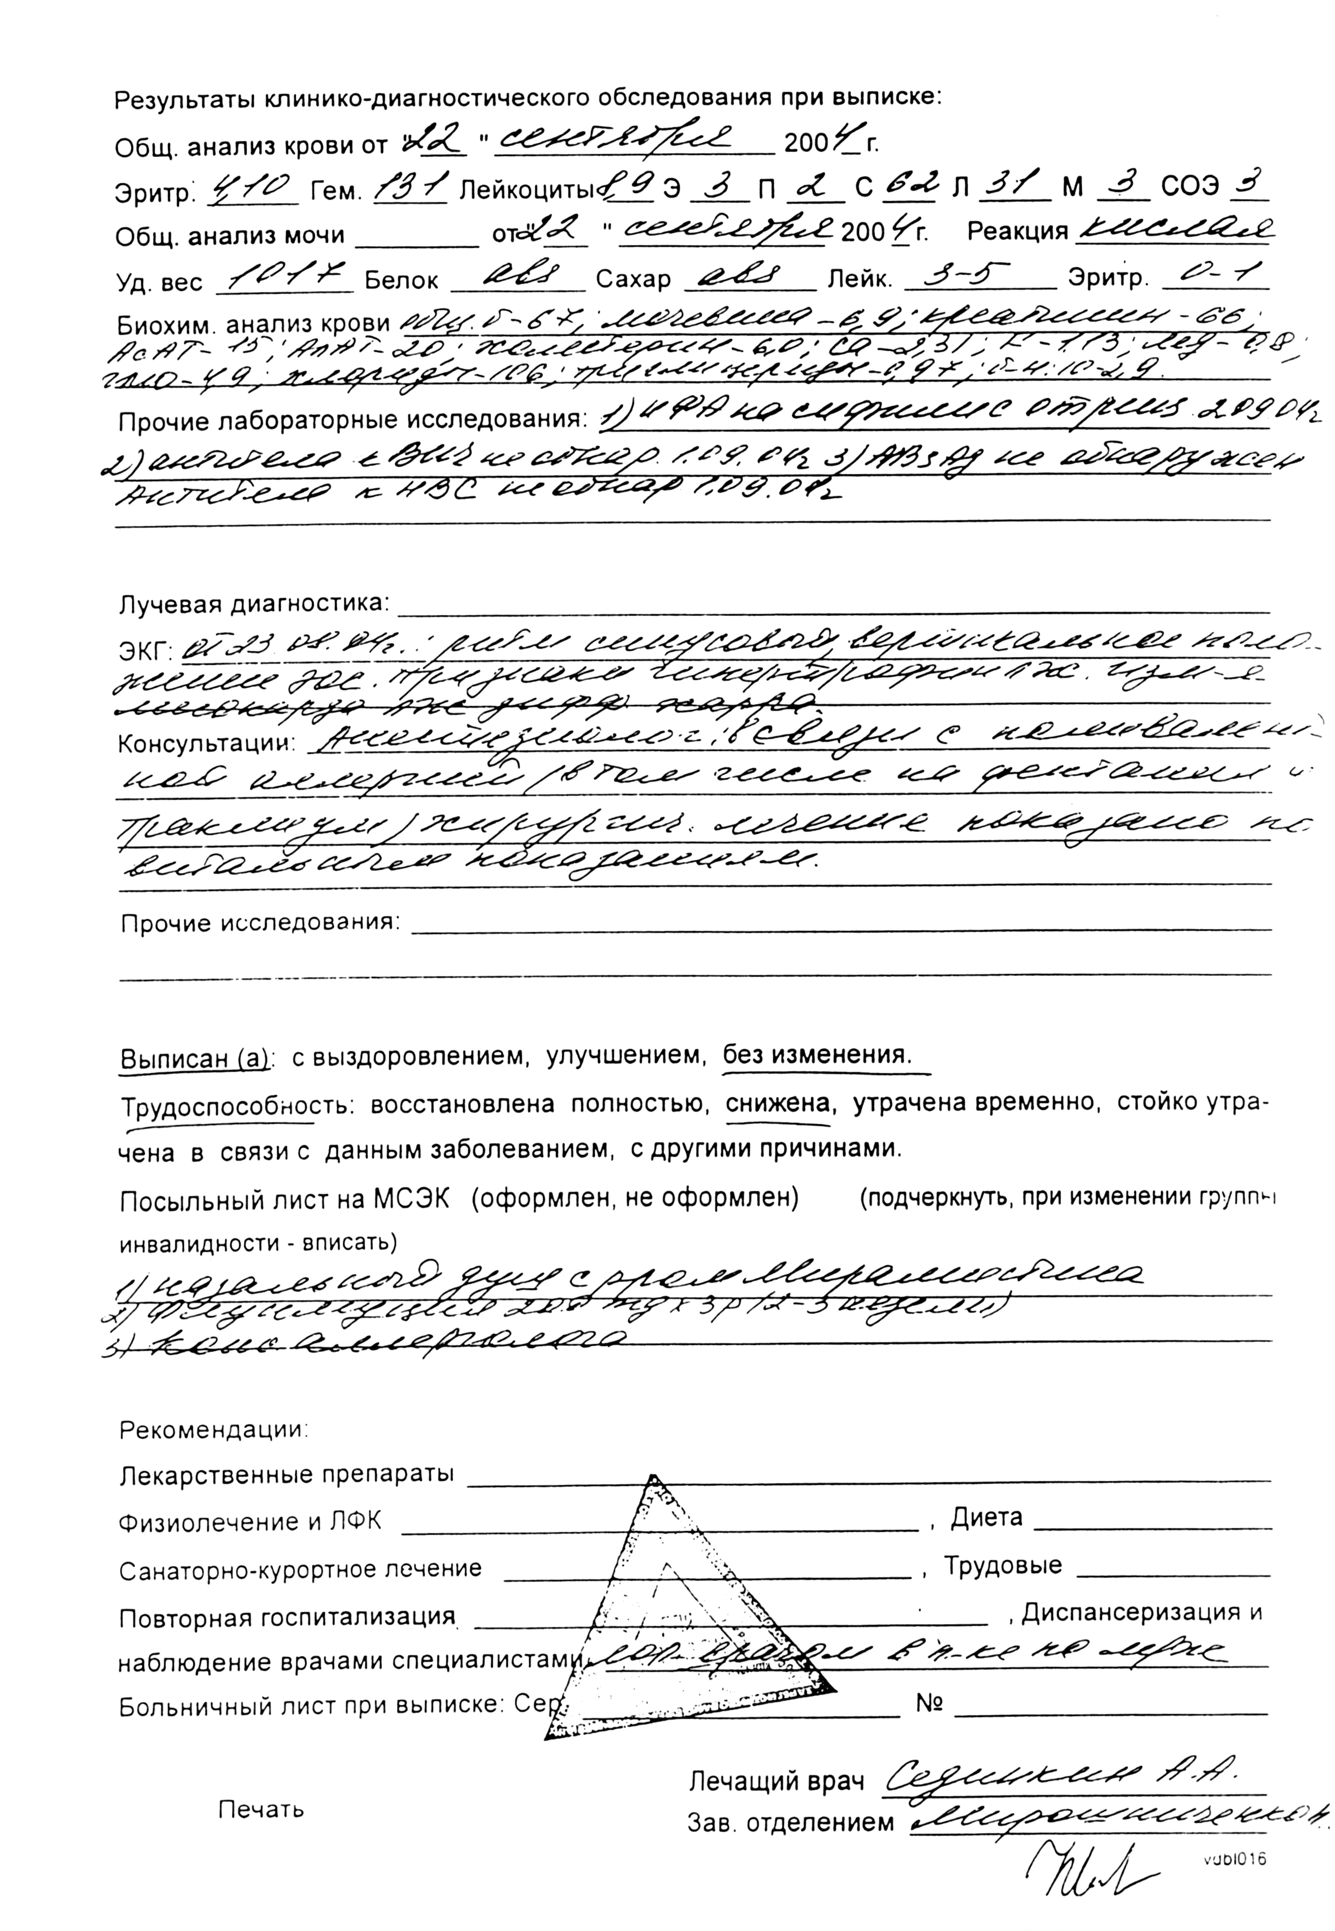 Результаты клинико-диагностического обследования при выписке:
Общ. анализ крови от "22" сентября 2004 г.
Эритр. 4,10 Гем. 131 Лейкоциты 8,9 Э 3 П 2 С 62 Л 31 М 3 СОЭ 3
Общ. анализ мочи от "22" сентября 2004 г. Реакция кислая
Уд. вес 1017 Белок abs Сахар abs Лейк. 3-5 Эритр. 0-1
Биохим. анализ крови общ. б-67; мочевина-6,9; креатинин-66;
АсАТ-15; АлАТ-20; холестерин-6,0; Са-2,31; К-
хлориды-106; триглицериды-0,97;
Прочие лабораторные исследования: 1) ИФА на сифилис отриц. 2.09.04г
2) антитела к ВИЧ не обнар. 1.09.04г 3) не обнаружен
Антитела к НВС не обнар 1.09.04г
Лучевая диагностика:
ЭКГ: от 23.08.04г.: ритм синусовый, вертикальное поло-
жение эос. Признаки гипертрофии ЛЖ. Изм-я
миокарда ЛЖ дифф. хар-ра.
Консультации: Анестезиолог: в связи с поливалент-
ной аллергией (в том числе на фентанил и
тракриум) хирургич. лечение показано по
витальным показаниям.
Прочие исследования:
Выписан (а): с выздоровлением, улучшением, без изменения.
Трудоспособность: восстановлена полностью, снижена, утрачена временно, стойко утра-
чена в связи с данным заболеванием, с другими причинами.
Посыльный лист на МСЭК (оформлен, не оформлен) (подчеркнуть, при изменении группы
инвалидности - вписать)
1) назальный душ с р-ром Мирамистина
2) Флуимуцил 200 mg x 3 р (2-3 недели)
3) Конс аллерголога
Рекомендации:
Лекарственные препараты
Физиолечение и ЛФК , Диета
Санаторно-курортное лечение , Трудовые
Повторная госпитализация , Диспансеризация и
наблюдение врачами специалистами лор-врачом в п-ке по м/ж
Больничный лист при выписке: Сер. №
Лечащий врач Сединкин А.А.
Печать
Зав. отделением Мирошниченко Н.
vubl016